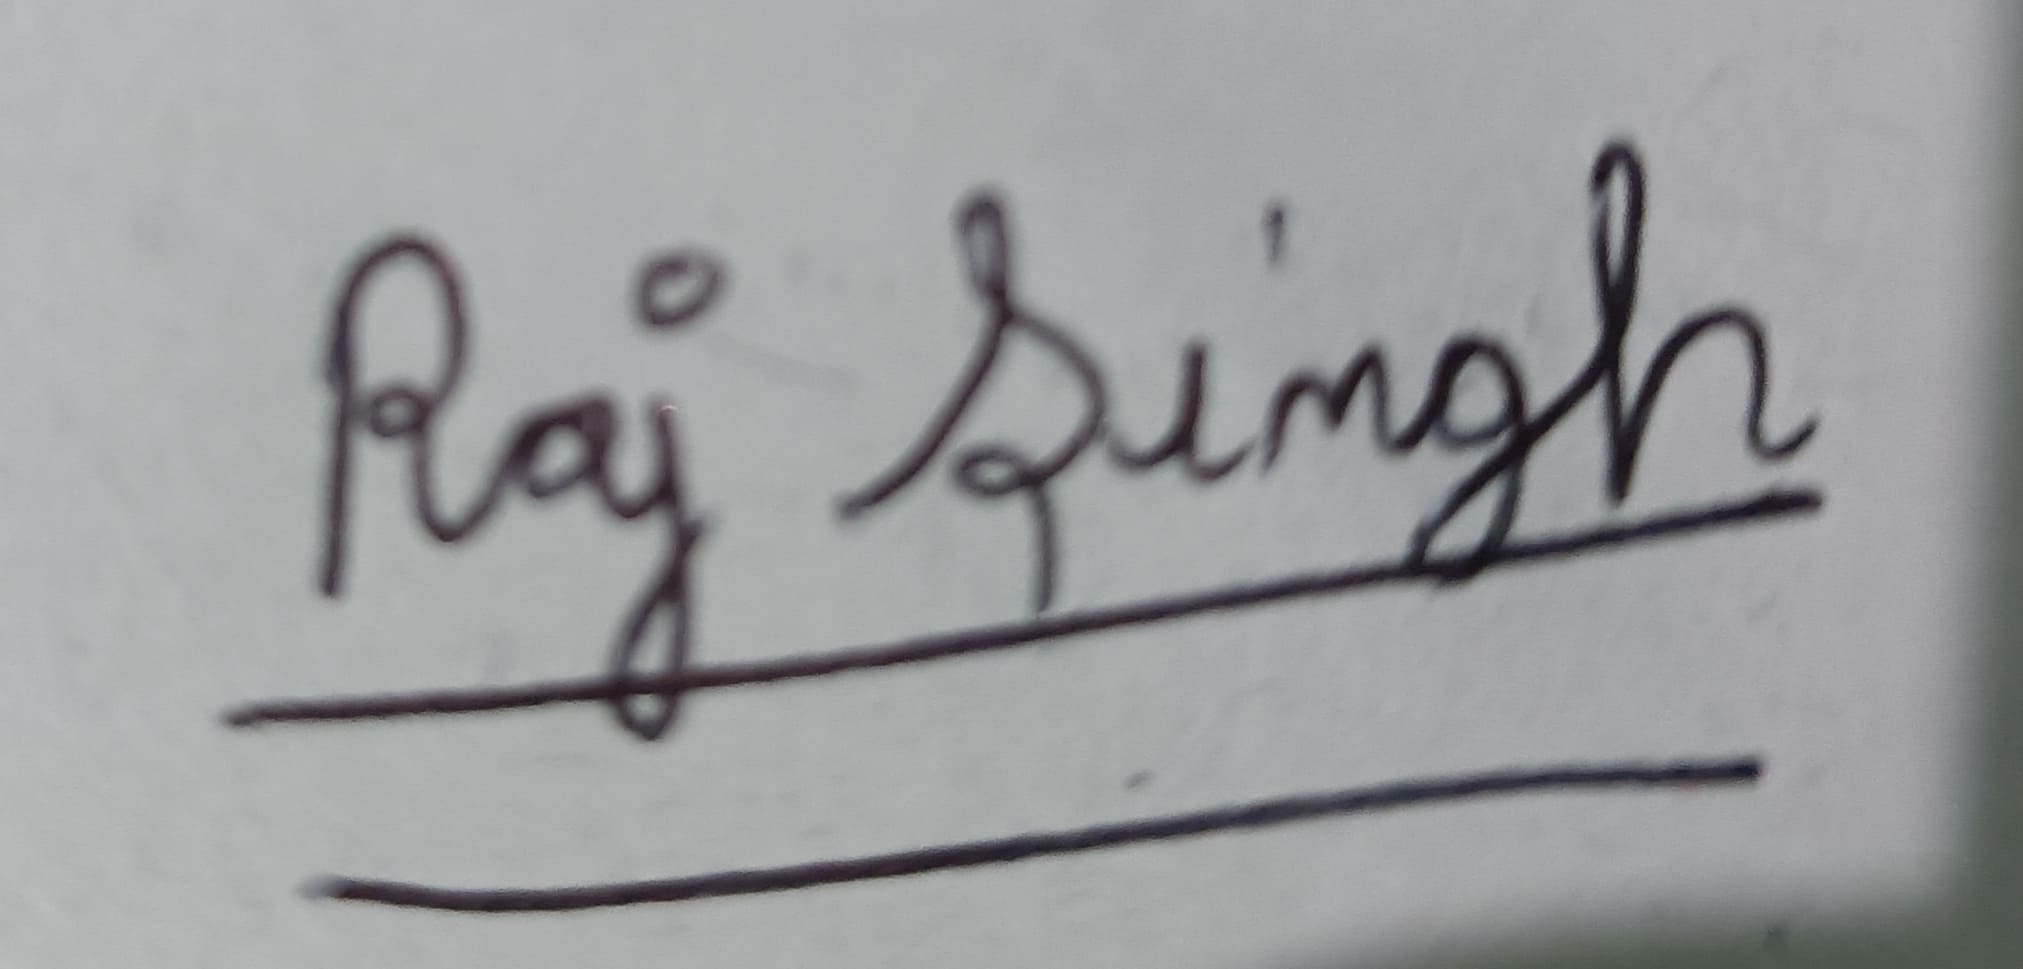 Raj Singh